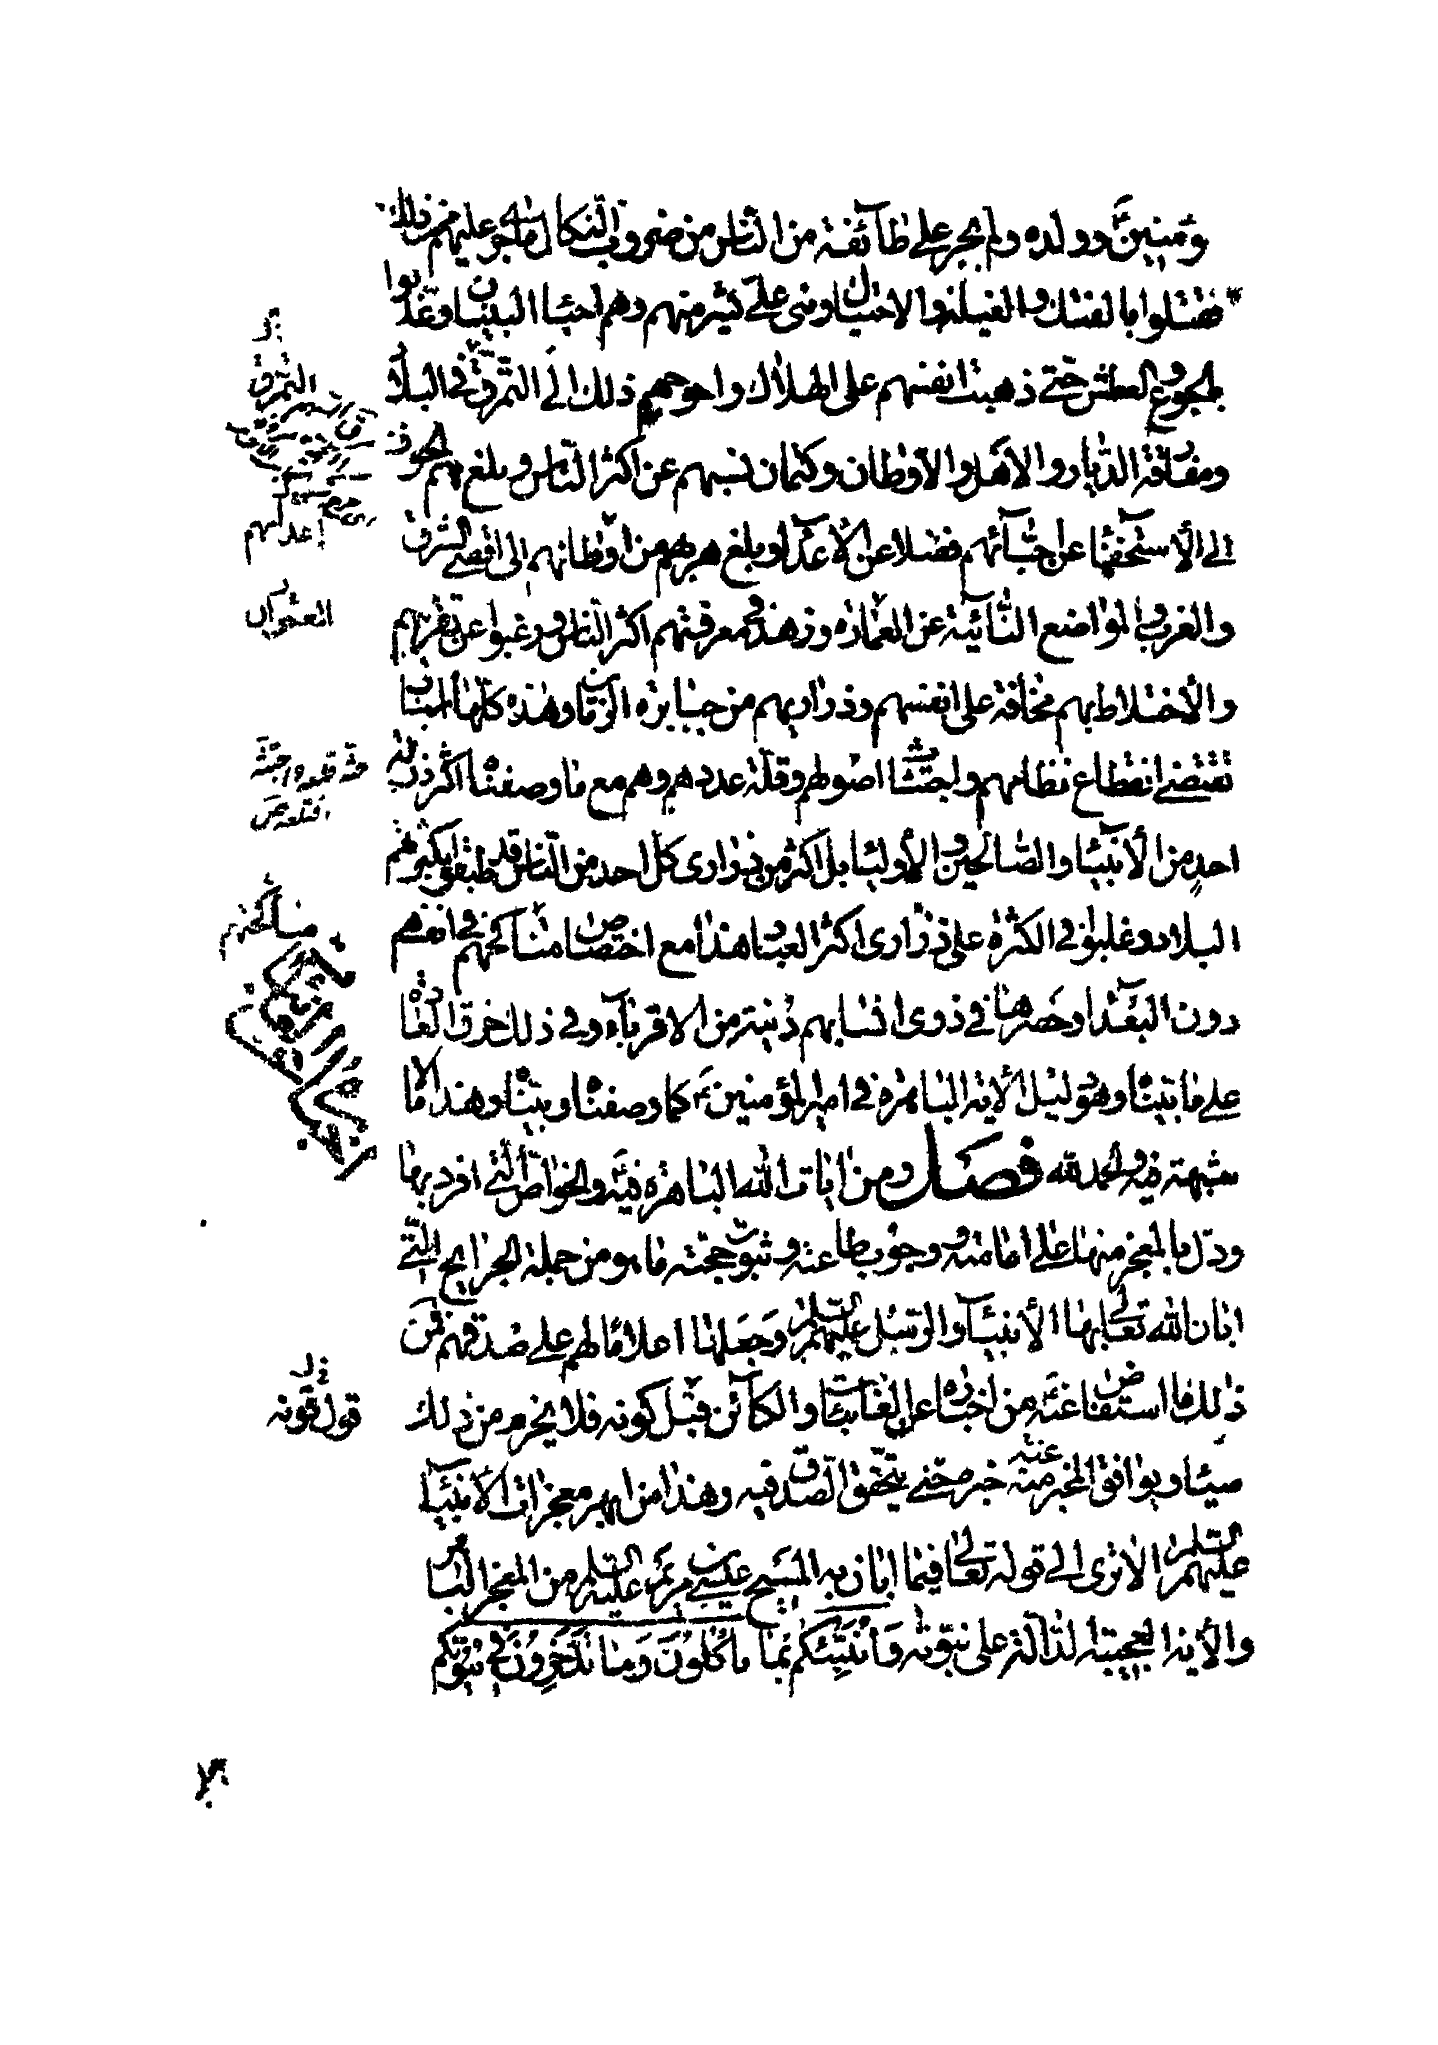 ؤمنين ع وولده ولم يجر على طائفة من الناس من ضروب النكال ما جرى عليهم من ذلك
فقتلوا بالفتك والغيلة والاحتيال وبنى على كثير منهم وهم احياء البنيان وعذبوا
بالجوع والعطش حتى ذهبت انفسهم على الهلاك واحوجهم ذلك الى التمزق في البلاد
ومفارقة الديار والاهل والاوطان وكتمان نسبهم عن اكثر الناس وبلغ بهم الخوف
الى الاستخفاء عن احبائهم فضلا عن الاعداء وبلغ هربهم من اوطانهم الى اقصى الشرق
والغرب والمواضع النائية عن العمارة وزهد في معرفتهم اكثر الناس ورغبوا عن تقريبهم
والاختلاط بهم مخافة على انفسهم وذراريهم من جبابرة الزمان وهذه كلها اسباب
تقتضي انقطاع نظامهم واجتثاث اصولهم وقلة عددهم وهم مع ما وصفناه اكثر ذرية
احد من الانبياء والصالحين والاولياء بل اكثر من ذراري كل احد من الناس قد طبقوا بكثرتهم
البلاد وغلبوا في الكثرة على ذراري اكثر العباد هذا مع اختصاص مناكحهم في انفسهم
دون البعداء وحصرها في ذوي انسابهم دنية من الاقرباء وفي ذلك خرق العادة
على ما بيناه وهو دليل الآية الباهرة في امير المؤمنين ع كما وصفناه وبيناه وهذا ما لا
شبهة فيه والحمد لله فصل ومن ايات الله الباهرة فيه ع والخواص التي افرده بها
ودل بالمعجز منها على امامته ووجوب طاعته وثبوت حجته ما هو من جملة الجرايح التي
ابان الله تعالى بها الانبياء والرسل عليهم السلام وجعلها اعلاما لهم على صدقهم فمن
ذلك ما استفاض عنه ع من اخباره عن الغائبات والكائن قبل كونه فلا يخرم من ذلك
شيئا ويوافق المخبر منه خبره حتى يتحقق الصدق فيه وهذا من ابهر معجزات الانبياء
عليهم السلام الا ترى الى قوله تعالى فيما ابان به المسيح عيسى بن مريم عليه السلام من المعجز الباهر
والاية العجيبة الدالة على نبوته وَأُنَبِّئُكُم بِمَا تَأْكُلُونَ وَمَا تَدَّخِرُونَ فِي بُيُوتِكُمْ
التمزق
اعدائهم
مناكحتهم
قول قونه